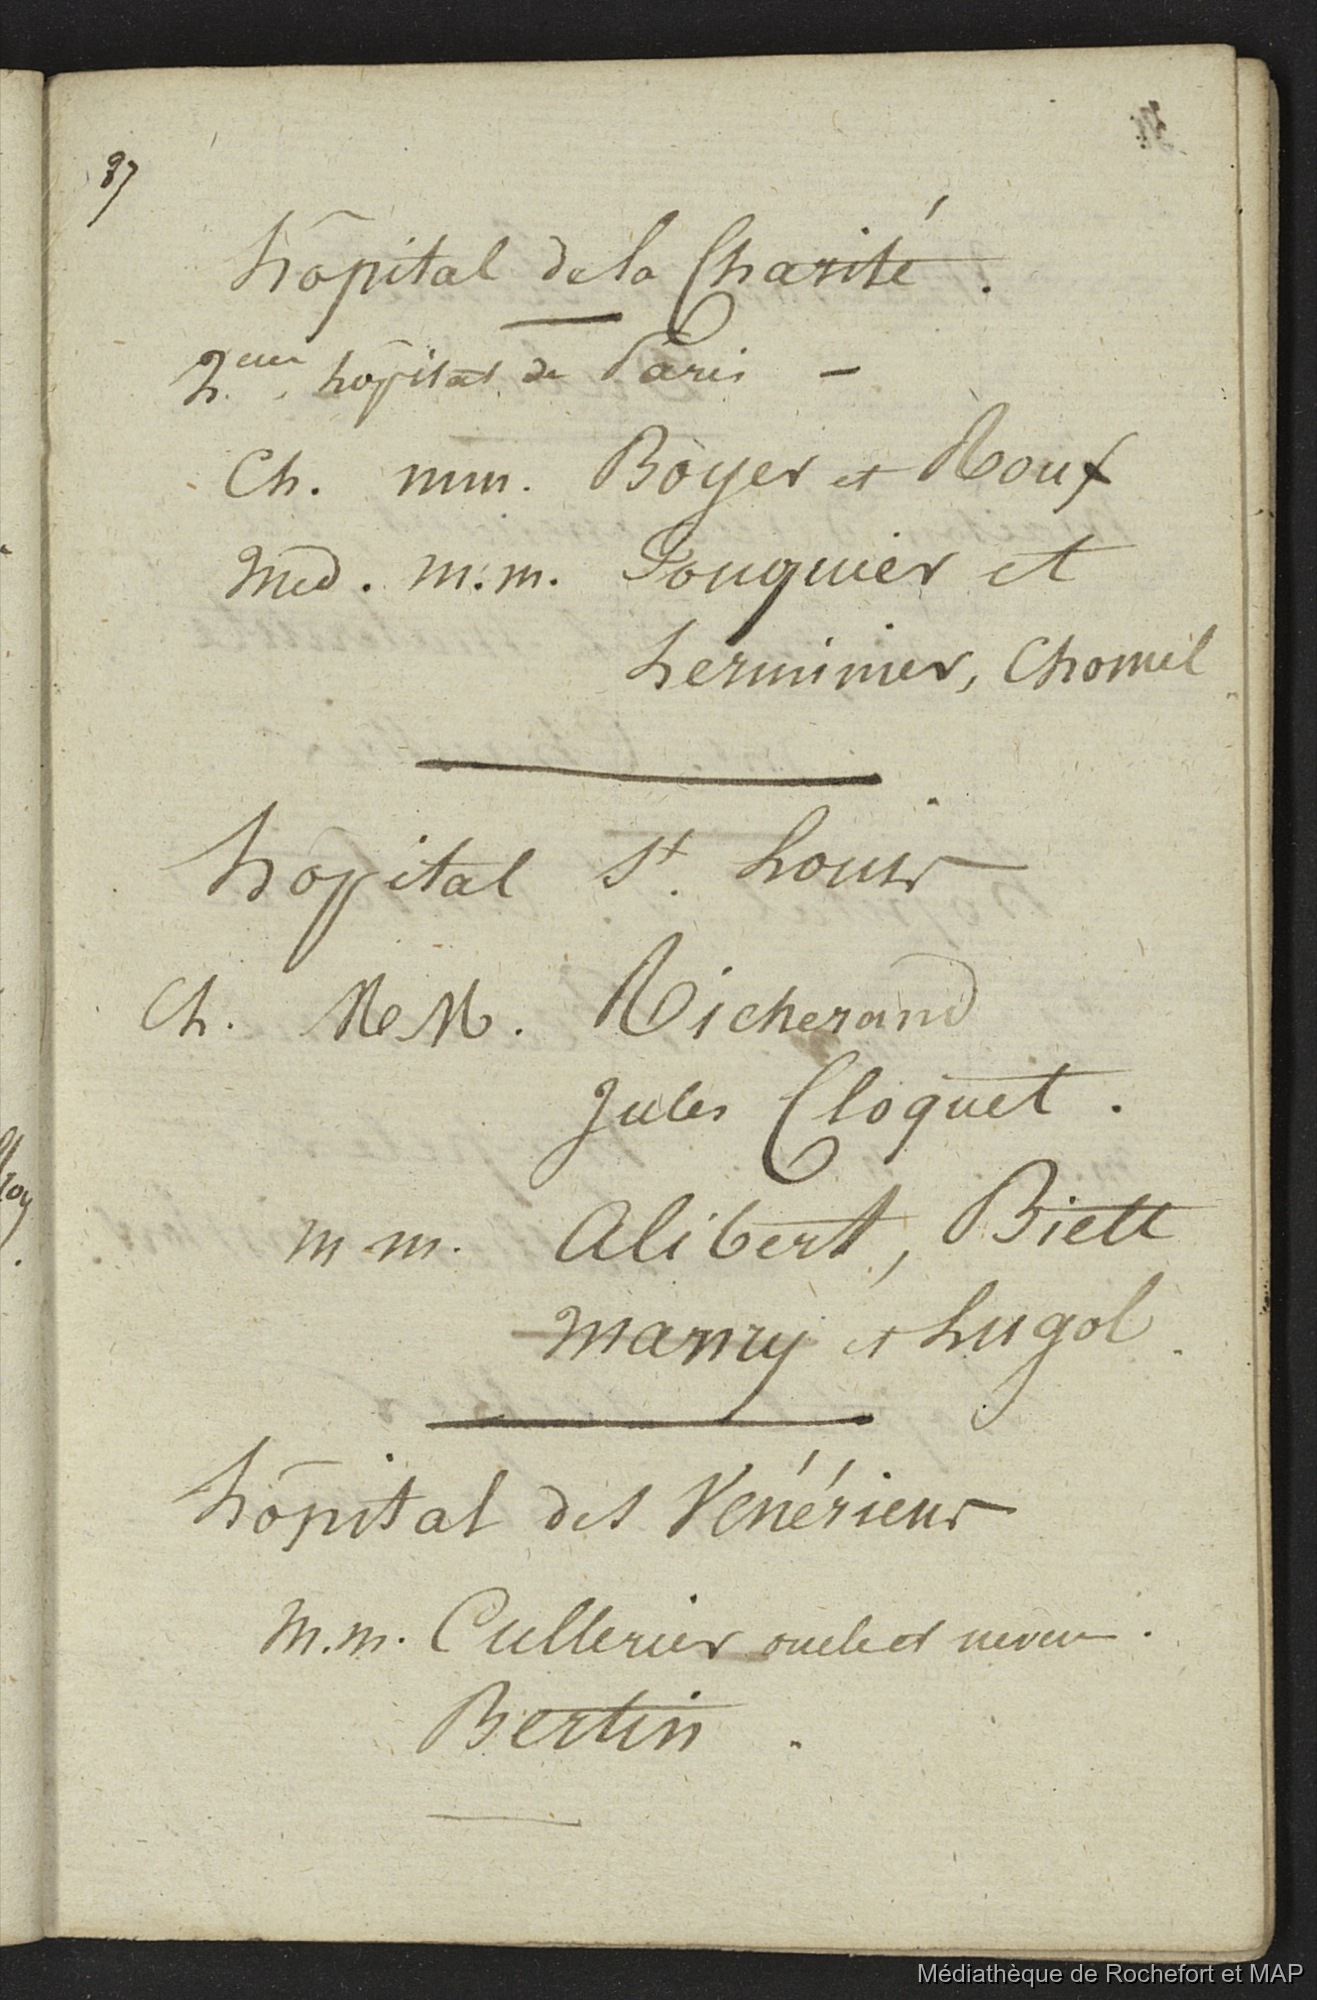 87
hôpital de la Charité.
2.eme hôpital de Paris -
Ch. mm. Boyer et Roux
Med. m.m. Fouquier et
Lerminier, Chomel
hôpital St. Louis
Ch. MM. Richerand
Jules Cloquet.
m m. Alibert, Biett
Manry et Lugol.
hôpital des Vénériens
M.m. Cullerier oncle et neveu.
Bertin.
Médiathèque de Rochefort et MAP